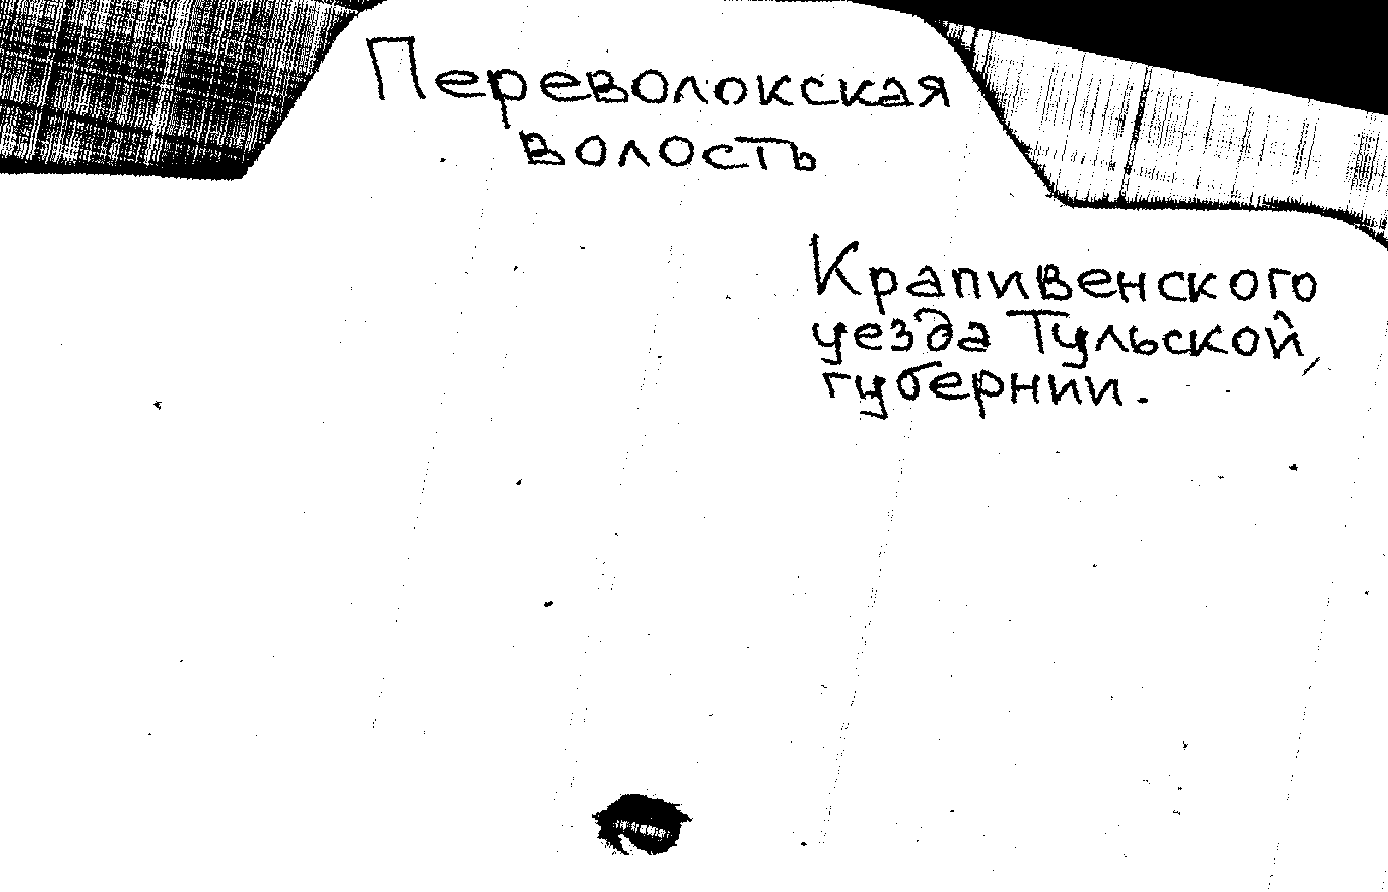 Переволокская
волость
Крапивенского
уезда Тульской
губернии.